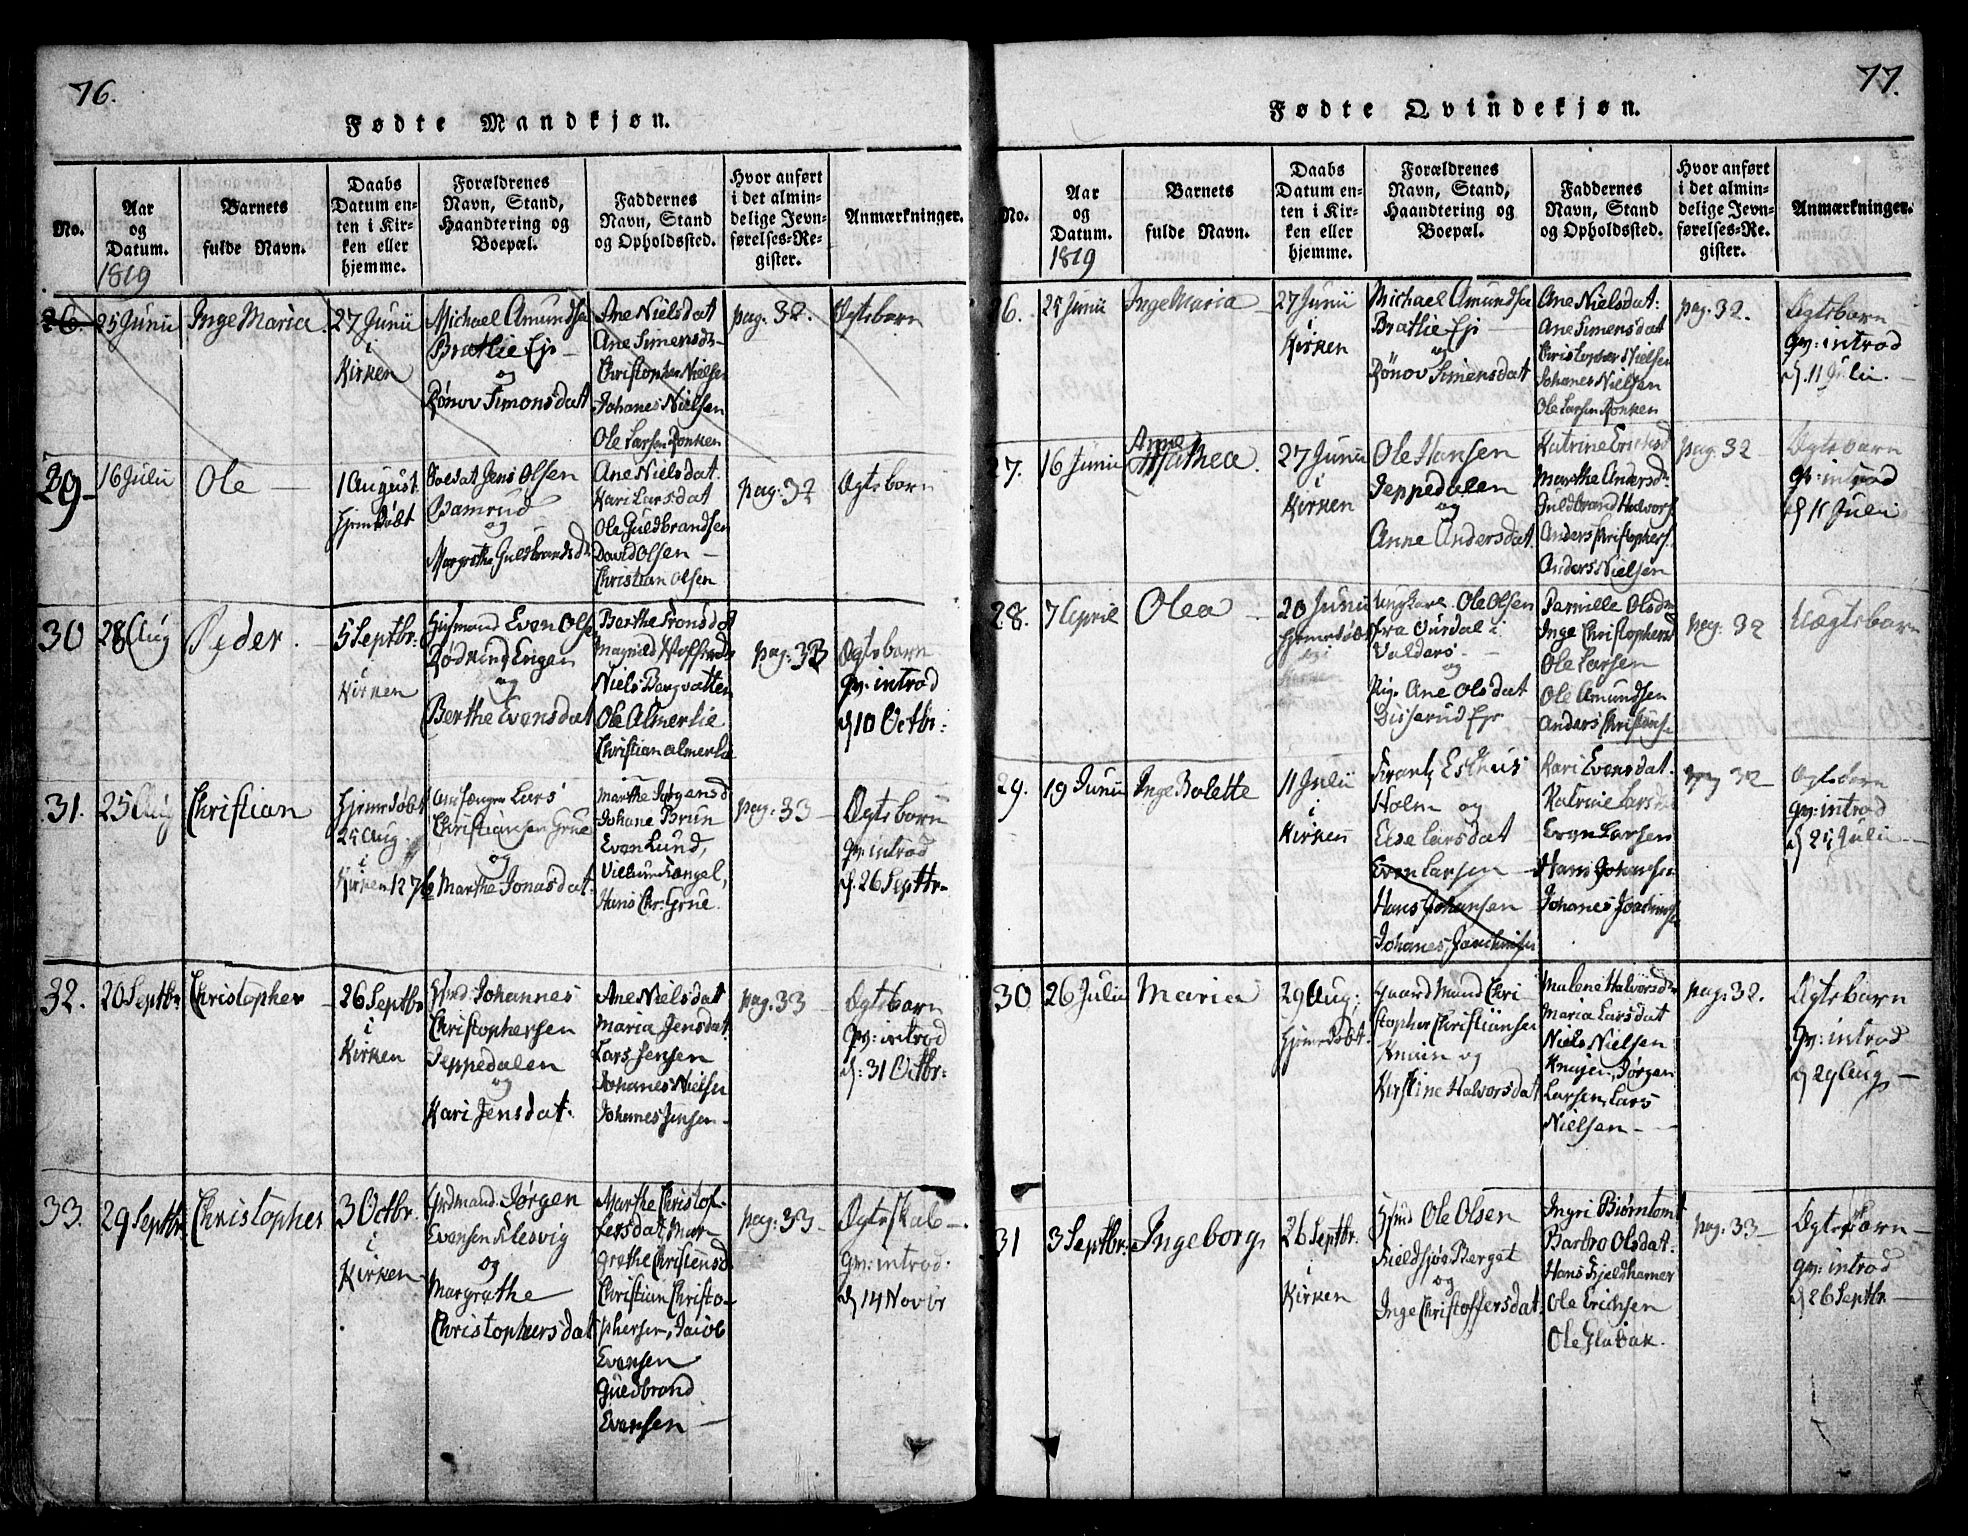 76.
Fødte Mandkjøn.
No.
Aar
og
Datum.
1819
Barnets
fulde Navn.
Daabs
Datum en-
ten i Kir-
ken eller
hjemme.
Forældrenes
Navn, Stand,
Haandtering og
Boepæl.
Faddernes
Navn, Stand
og Opholdssted.
Hvor anført
i det almin-
delige Jevn-
førelses-Re-
gister.
Anmærkninger.
26.
25 Junii
Inge Maria
27 Junii
i
Kirken
Michael Amundsen
Bratlie Ejr
og
Rønov Simonsdat
Ane Nielsdat
Ane Simensdr
Christopher Nielsen
Johanes Nielsen
Ole Larsen Ronken
pag. 32.
Ægtebarn
29
16 Julii
Ole
1 August
hjemdøbt
Soldat Jens Olsen
Bamrud
og
Margrethe Guldbrandsdr
Ane Nielsdat.
Kari Larsdat
Ole Guldbrandsen
David Olsen
Christian Olsen
pag: 32
Ægtebarn
30
28 Aug
Peder.
5 Septbr:
Kirken
Huusmand Even Olse
Engen
og
Berthe Evensdat
Berthe
Niels Bergvatten
Ole Almerlie
Christian Almerlie
pag: 33
Ægtebarn
gr: introd
d 10 Octbr:
31.
25 Aug
Christian
Hjemdøbt
25 Aug
i
Kirken
Lars
Christiansen Grue
og
Marthe Jonasdat
Marthe Jørgensd
Johane Brun
Even Lund,
Hans Chr: Grue.
pag: 33
Ægtebarn
gr: introd
d. 26 Septbr
32.
20 Septbr
Christopher
26 Septbr
i
Kirken
Johannes
Christophersen
Seppedalen
og
Kari Jensdat.
Ane Nielsdat
Maria Jensdat
Lars Jensen
Johanes Nielsen
Johannes Jensen
pag. 33
Ægtebarn
gr: introd
d: 31 Octbr:
33.
29 Septbr
Christopher
3 Octbr.
i
Kirken
Grdmand Jørgen
Evensen Klesvig
og
Margrethe
Christophersdat
Marthe Christof-
fersdat, Mar-
grethe Christensd
Christian Christo-
phersen, Jacob
Evensen
Guldbrand
Evensen
pag: 33
Ægteskab
gr: introd.
d 14 Novbr
77.
Fødte Qvindekjøn.
No.
Aar
og
Datum.
1819
Barnets
fulde Navn.
Daabs
Datum en-
ten i Kir-
ken eller
hjemme.
Forældrenes
Navn, Stand,
Haandtering og
Boepæl.
Faddernes
Navn, Stand
og Opholdssted.
Hvor anført
i det almin-
delige Jevn-
førelses-Re-
gister.
Anmærkninger.
26.
25 Junii
Inge Maria
27 Junii
i
Kirken
Michael Amundsen
Bratlie Ejr
og
Rønov Simensdat
Ane Nielsdat:
Ane Simensdat
Christopher Nielsen
Johanes Nielsen
Ole Larsen Ronken
pag. 32.
Ægtebarn
gr: introd
d. 11 Julii.
27.
16 Junii
Anne
Mathea.
27 Junii
i
Kirken
Ole Hansen
Seppedalen
og
Anne Andersdat.
Katrine Ericksd
Marthe Andersdr
Guldbrand Halvors
Anders Christophers.
Anders Nielsen
pag. 32
Ægtebarn
gr: introd
d 11 Julii
28.
7 April
Olea
20 Junii
hjemdøbt
Ungkarl Ole Olsen
fra Ourdal i
Valders.
og
Pige Ane Olsdat
Disserud Ejr
Pernille Olsdr
Inge Christophersd
Ole Larsen
Ole Amundsen
Anders Christians.
pag. 32
Uægtebarn
29.
19 Junii
Inge Bolette
11 Julii
i
Kirken
Frantz Esthus
Holm og
Else Larsdat
Even Larsen
Hans Johansen
Johanes Joachimsen
Kari Evensdat.
Katrine Larsdat
Even Larsen
Hans Johansen
Johanes Joachimsen
pag 32
Ægtebarn
gr: introd
d 25 Julii
30
26 Julii
Maria
29 Aug;
hjemdøbt.
Gaard Mand Chri-
stopher Christiansen
Knain og
Kirstine Halvorsdat
Malene Halvorsdr
Maria Larsdat
Niels Nielsen
Knajen, Jørgen
Larsen, Lars
Nielsen
pag. 32.
Ægtebarn
gr: introd
d 29 Aug
31
3 Septbr.
Ingeborg
26 Septbr.
i
Kirken
Ole Olsen
Fieldsjøe Berget
og
Inge Christoffersdat
Ingri Biørntomt
Barbro Olsdat.
Hans Fjeldhamer
Ole Erichsen
Ole Glabak.
pag. 33
Ægtebarn
gr: introd
d 26 Septbr